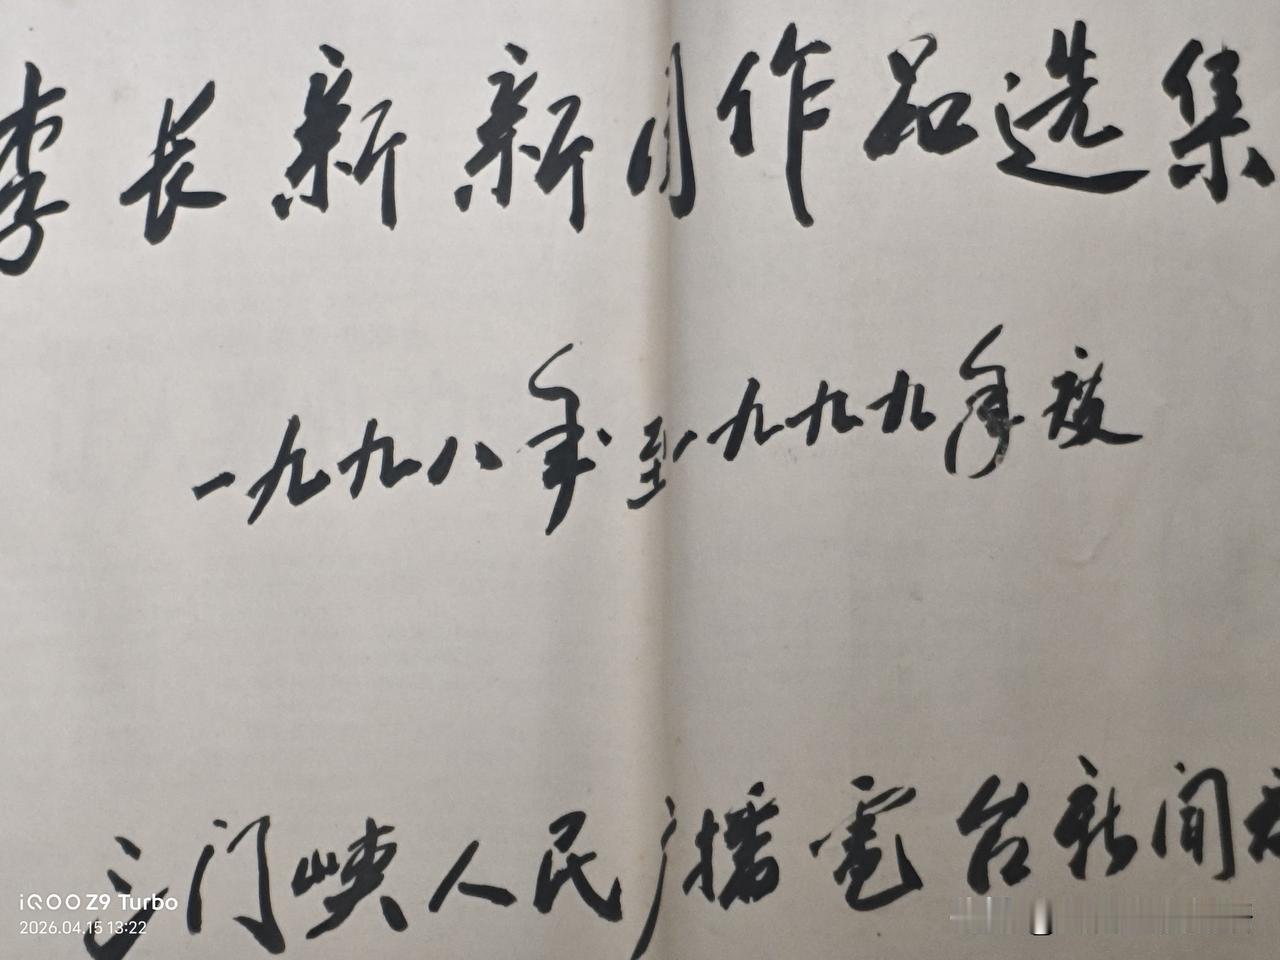 李长新新闻作品选集
一九九八年至一九九九年度
三门峡人民广播電台新闻
iQOO Z9 Turbo
2026.04.15 13:22